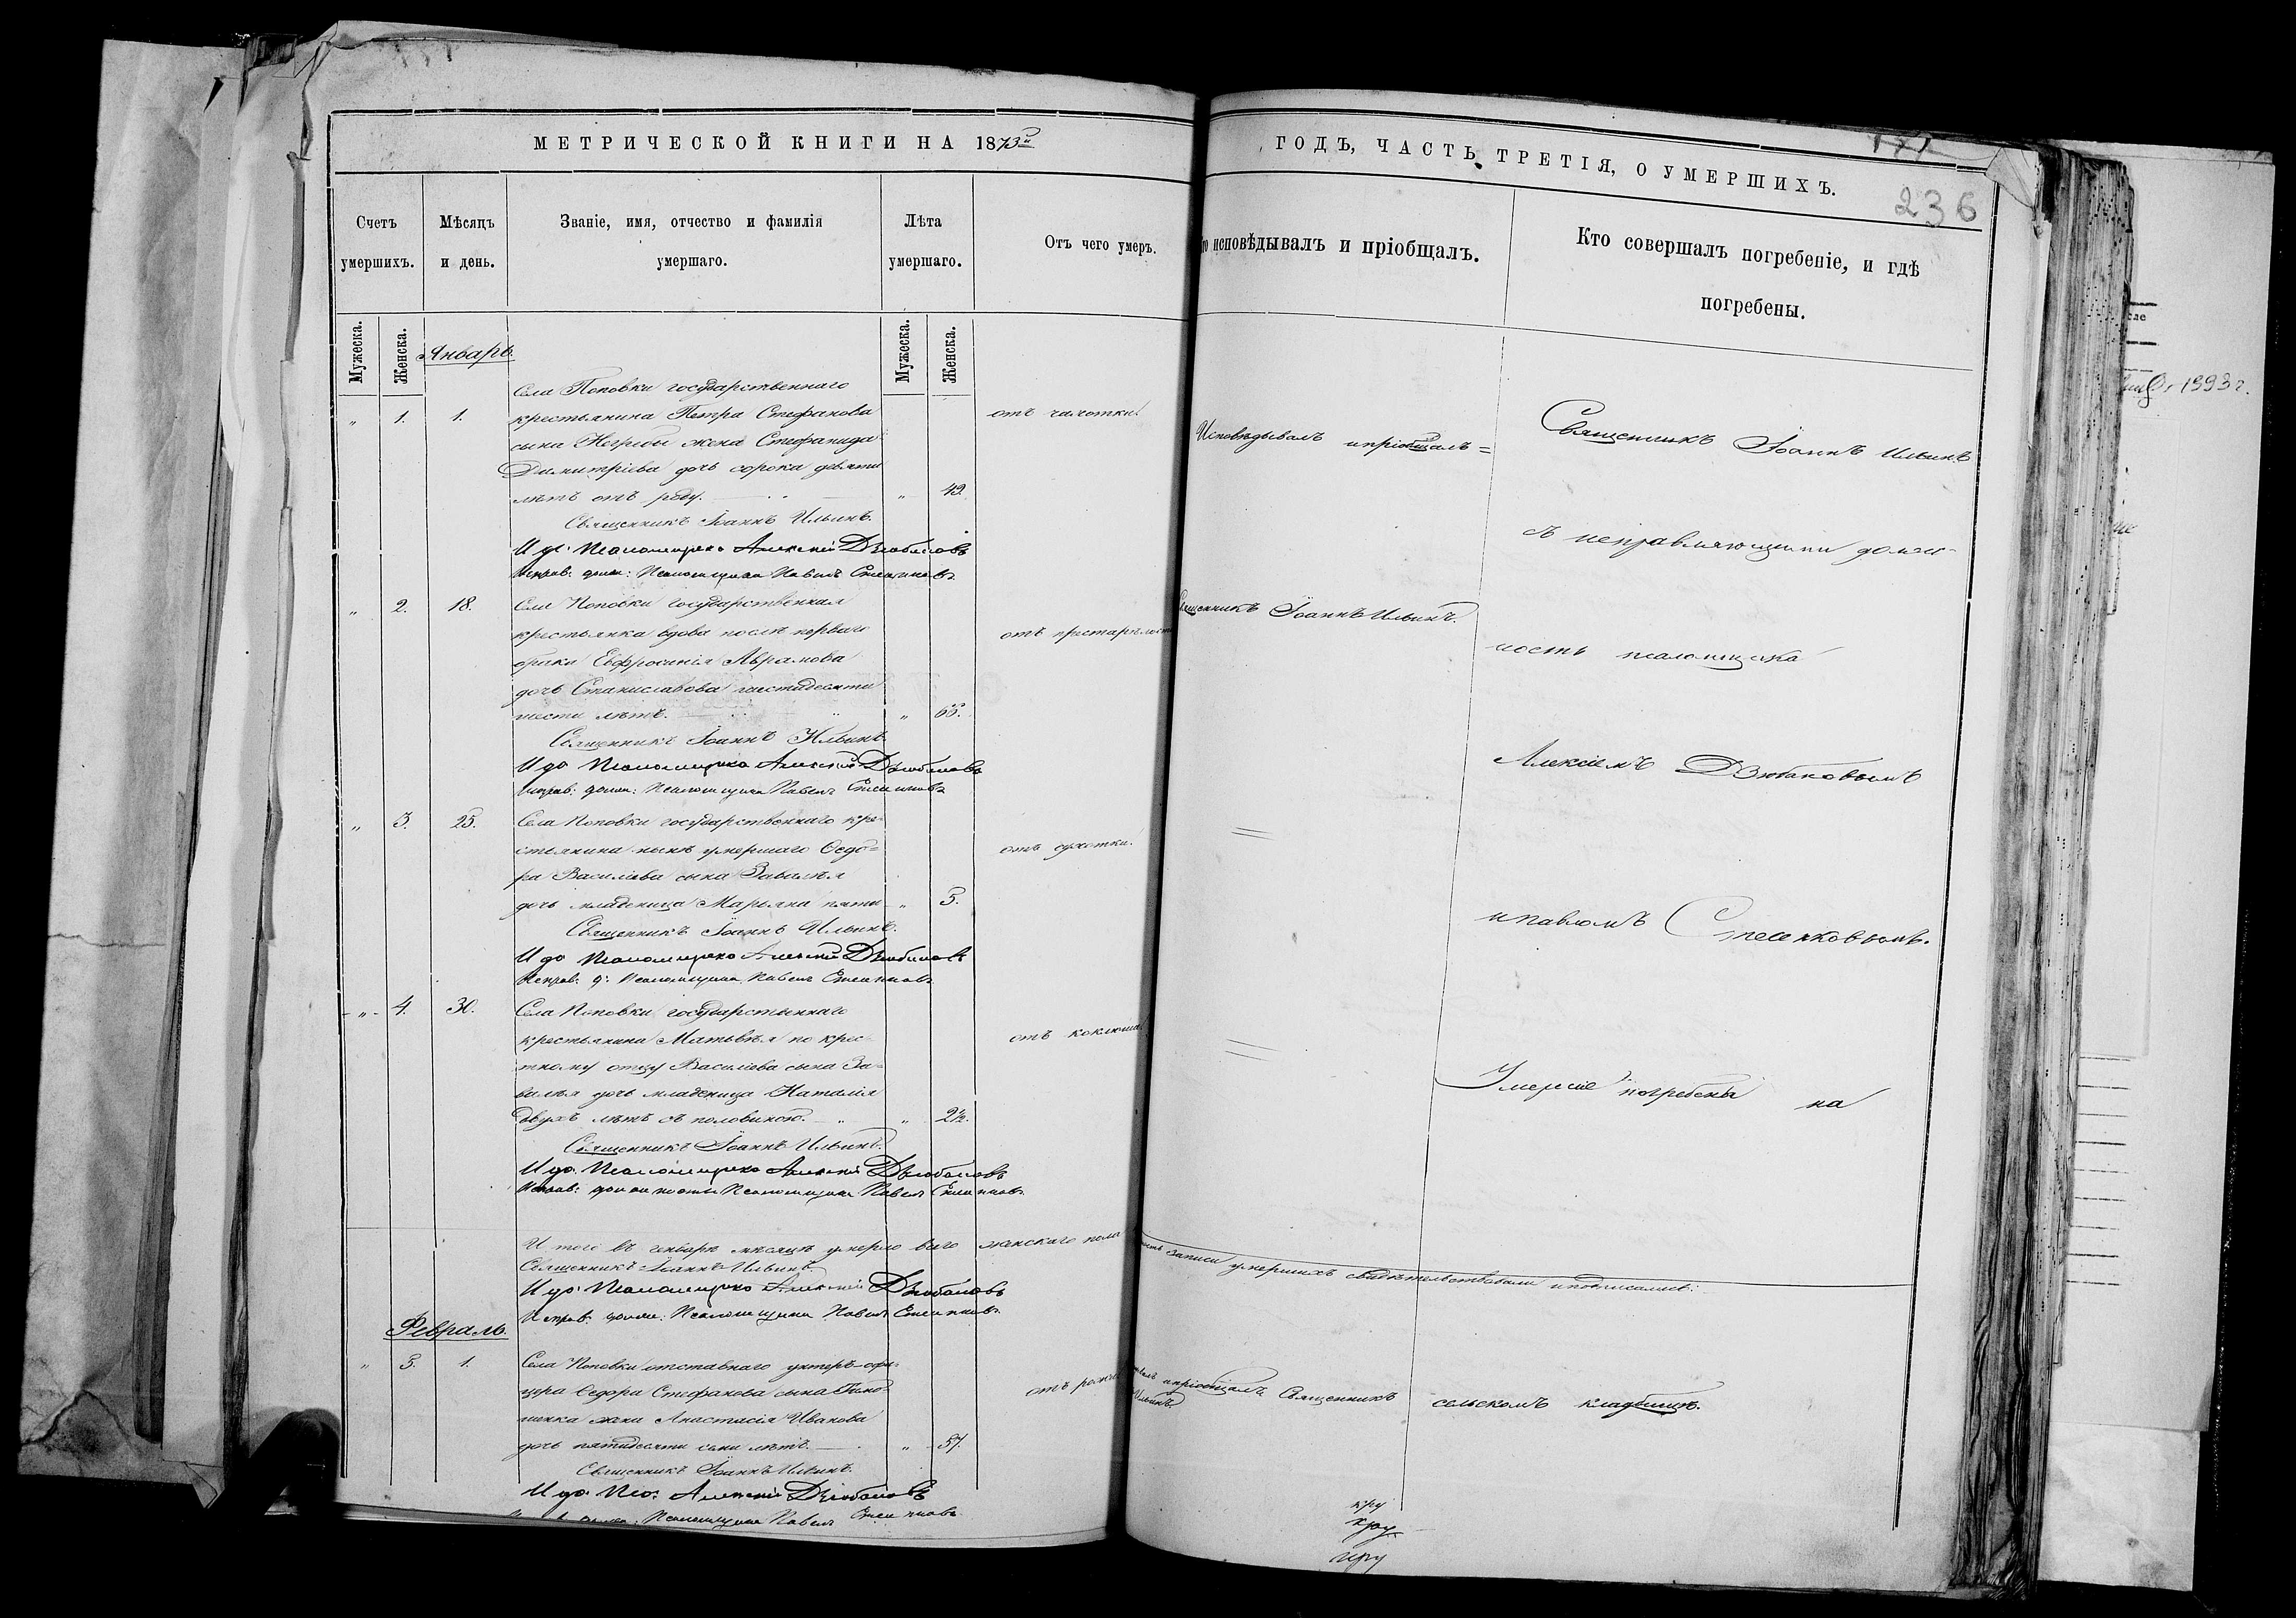 МЕТРИЧЕСКОЙ КНИГИ НА 1873й
Счетъ умершихъ.
Мѣсяцъ и день.
Званіе, имя, отчество и фамилія умершаго.
Лѣта умершаго.
Отъ чего умеръ.
Мужеска.
Женска.
Январь.
Мужеска.
Женска.
Села Поповки государственнаго
" 1. 1. крестьянина Петра Стефанова отъ чахотки.
сына Негребы жена Стефанида
Димитріева дочь сорока девяти
лѣтъ отъ роду. " 49.
Священникъ Іоаннъ Ильинъ.
И до: Псаломщика Алексій Дзюбановъ
Исправ: долж: Псаломщика Павелъ
" 2. 18. Села Поповки государственная
крестьянка вдова послѣ перваго отъ престарѣлости
брака Евфросинія Аврамова
дочь Станиславова шестидесяти
шести лѣтъ. " 66.
Священникъ Іоаннъ Ильинъ.
И до Псаломщика Алексій Дзюбановъ
Исправ: долж: Псаломщика Павелъ
" 3. 25. Села Поповки государственнаго кре-
стьянина нынѣ умершаго Ѳедо= отъ сухотки.
ра Василіева сына
дочь младеница Марьяна пяти " 5.
Священникъ Іоаннъ Ильинъ.
И до Псаломщика Алексій Дзюбановъ
Исправ: д: Псаломщика Павелъ
" 4. 30. Села Поповки государственнаго
крестьянина Матвѣя по крес отъ коклюша
тному отцу Василіева сына За-
дочь младеница Наталія
двухъ лѣтъ съ половиною. " 2½.
Священникъ Іоаннъ Ильинъ.
И до. Псаломщика Алексій Дзюбановъ
Исправ: должность Псаломщика Павелъ
И того въ генварѣ мѣсяцѣ умерло всего женскаго пола
Священникъ Іоаннъ Ильинъ
И до: Псаломщика Алексій Дзюбановъ
Исправ: долж: Псаломщика Павелъ
Февраль.
" 5. 1. Села Поповки отставнаго унтеръ-офи-
цера Ѳедора Стефанова сына
жена Анастасія Иванова
дочь пятидесяти семи лѣтъ. " 57.
Священникъ Іоаннъ Ильинъ.
И до: Пса: Алексій Дзюбановъ
Псаломщика Павелъ
ГОДЪ, ЧАСТЬ ТРЕТІЯ, О УМЕРШИХЪ.
236
исповѣдывалъ и пріобщалъ.
Кто совершалъ погребеніе, и гдѣ погребены.
Исповѣдывалъ и пріобщалъ=
Священникъ Іоаннъ Ильинъ.
Священникъ Іоаннъ Ильинъ
съ исправляющими долж-
ность псаломщика
Алексіемъ Дзюбановымъ
и Павломъ
Умершіе погребены на
записи умершихъ свидѣтельствовали и подписались:
и пріобщалъ Священникъ
Ильинъ.
сельскомъ кладбищѣ.
1993 г.